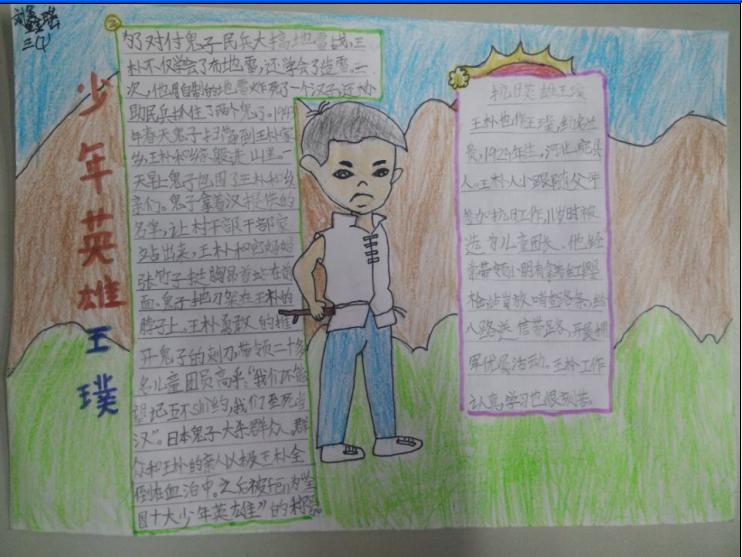 三(4)
少年英雄王璞
②
为了对付鬼子民兵大搞地雷战,王
朴不仅学会了布地雷,还学会了造雷。一
次,他用自制的地雷炸死了一个汉子,还协
助民兵抓住了两个鬼子。1943
年春天鬼子扫荡到王朴家
乡,王朴和乡亲躲进山里。一
天早上鬼子包围了王朴和乡
亲们。鬼子拿着汉提供的
名字,让村干部干部家
站出来,王朴和
张竹子挺胸昂首站在
面。鬼子把刀架在王朴的
脖子上。王朴勇敢的推
开鬼子的刺刀带领二十多
名儿童团员高呼:"我们不能
忘记五不shi约,我们至死当
汉"。日本鬼子大杀群众。群
众和王朴的亲人以及王朴全
倒在血泊中。之后被
国十大少年英雄"的称号。
抗日英雄王璞
王朴也作王璞,
员,1929年生,河北,完县
人。王朴从小跟随父
参加抗日工作,11岁时被
选为儿童团长。他经
常带领小朋友拿着红缨
枪站岗放哨查路条,给
八路送信带路,开展拥
军优属活动。王朴工作
认真,学习也很刻苦。